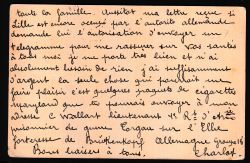 toute la famille Aussitot ma lettre reçue si
Lille est encore occupé par l'autorité allemande
demande lui l'autorisation d'envoyer un
telegramme pour me rassurer sur vos santés
à tous moi je me porte très bien et n'ai
absolument besoin de rien j'ai suffisamment
d'argent la seule chose qui pourrait me
faire plaisir c'est quelques paquets de cigarette
Maryland que tu pourrais envoyer à mon
C Wallart lieutenant
prisonnier de guerre Torgau sur l'Elbe
forteresse de Brückenkopf Allemagne
Bons baisers à tous Charlot